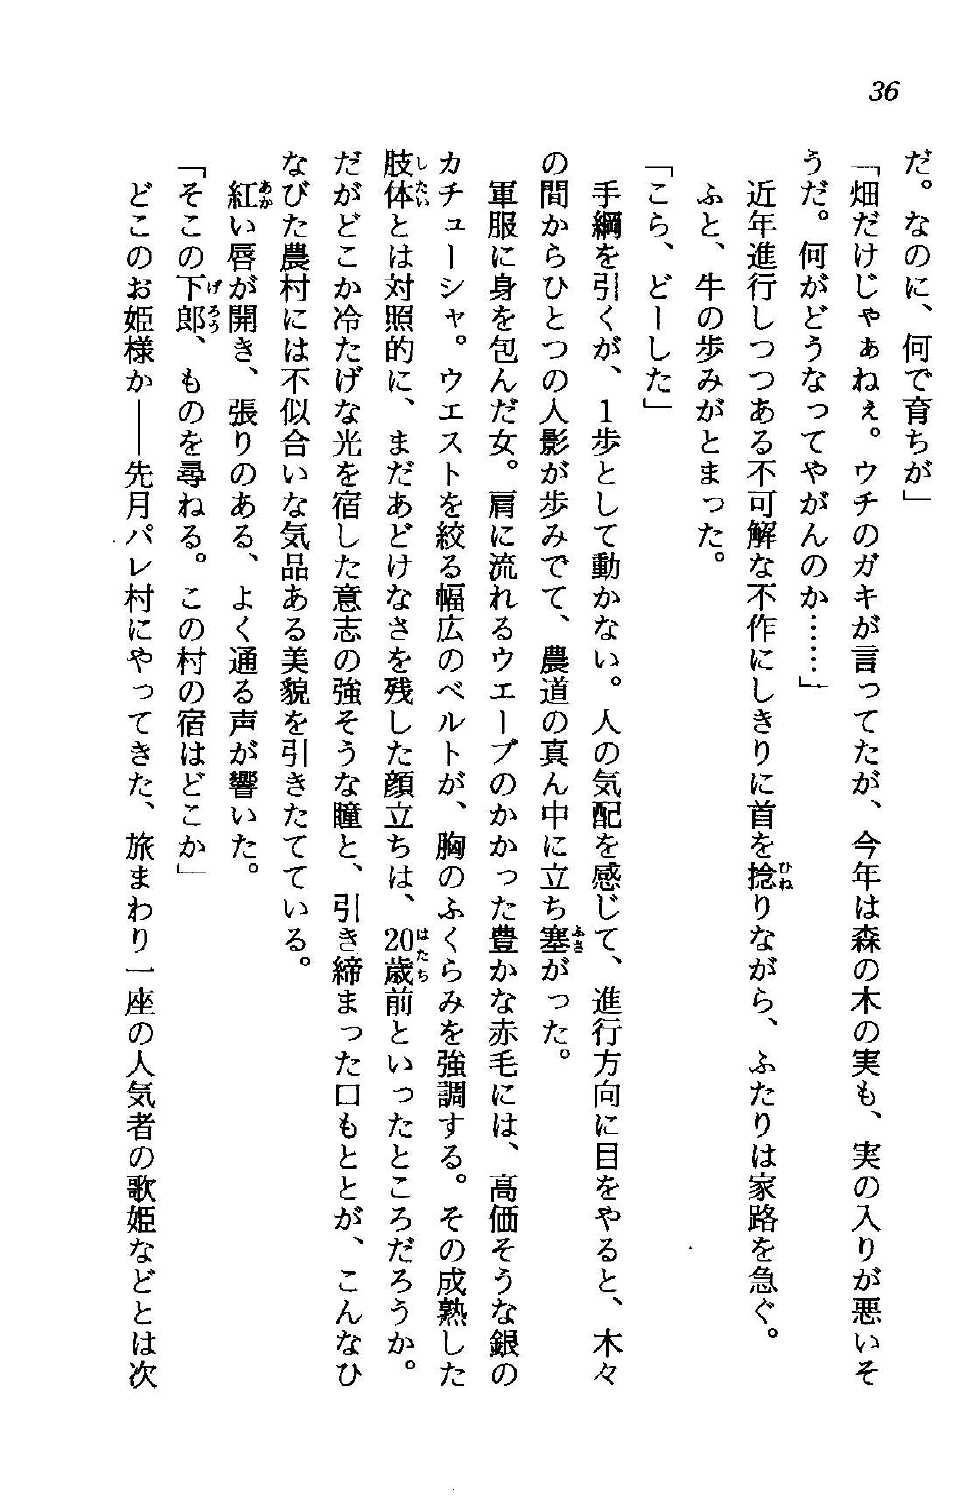 36
だ。なのに、何で育ちが」
「畑だけじゃぁねぇ。ウチのガキが言ってたが、今年は森の木の実も、実の入りが悪いそ
うだ。何がどうなってやがんのか……」
近年進行しつつある不可解な不作にしきりに首を捻りながら、ふたりは家路を急ぐ。
ふと、牛の歩みがとまった。
「こら、どーした」
手綱を引くが、1歩として動かない。人の気配を感じて、進行方向に目をやると、木々
の間からひとつの人影が歩みでて、農道の真ん中に立ち塞がった。
軍服に身を包んだ女。肩に流れるウエーブのかかった豊かな赤毛には、高価そうな銀の
カチューシャ。ウエストを絞る幅広のベルトが、胸のふくらみを強調する。その成熟した
肢体とは対照的に、まだあどけなさを残した顔立ちは、20歳前といったところだろうか。
だがどこか冷たげな光を宿した意志の強そうな瞳と、引き締まった口もととが、こんなひ
なびた農村には不似合いな気品ある美貌を引きたてている。
紅い唇が開き、張りのある、よく通る声が響いた。
「そこの下郎、ものを尋ねる。この村の宿はどこか」
どこのお姫様か――先月パレ村にやってきた、旅まわり一座の人気者の歌姫などとは次